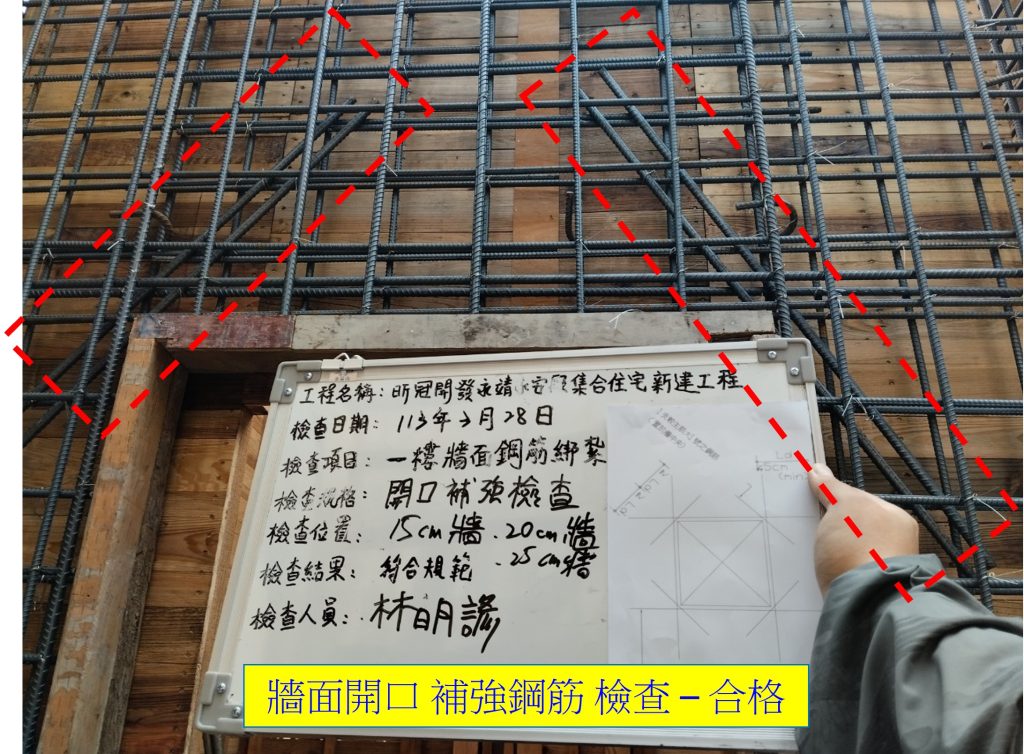 工程名稱：昕冠開發永靖永安段集合住宅新建工程
檢查日期：113年3月28日
檢查項目：一樓牆面鋼筋綁紮
檢查規格：開口補強檢查
檢查位置：15cm牆．20cm牆
．25cm牆
檢查結果：符合規範
檢查人員：林明諺
Ld
5cm
(min)
牆面開口 補強鋼筋 檢查 – 合格